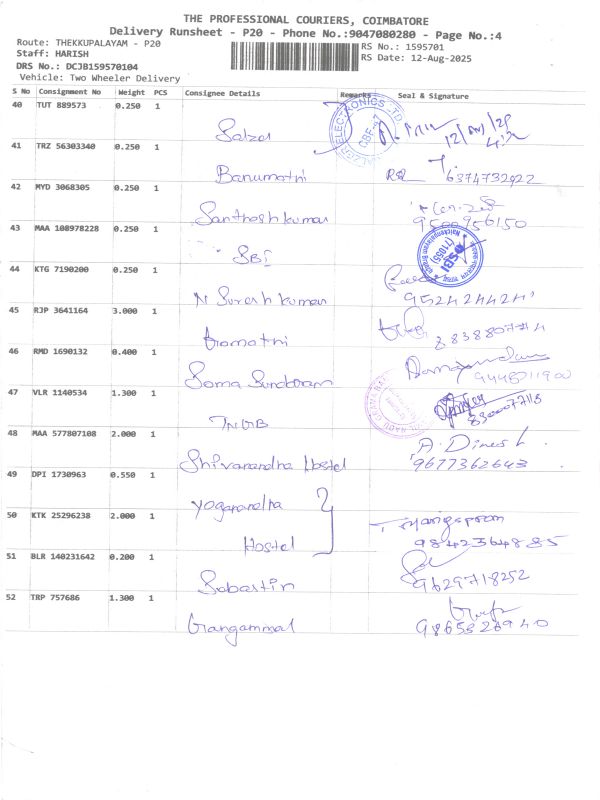 THE PROFESSIONAL COURIERS, COIMBATORE
Delivery Runsheet - P20 - Phone No.:9047080280 - Page No.:4
Route: THEKKUPALAYAM - P20
RS No.: 1595701
Staff: HARISH
RS Date: 12-Aug-2025
DRS No.: DCJB159570104
Vehicle: Two Wheeler Delivery
S No Consignment No Weight PCS Consignee Details Remarks Seal & Signature
40 TUT 889573 0.250 1
Salzer
41 TRZ 56303340 0.250 1
Banumathi 6374732922
42 MYD 3068305 0.250 1
Santhosh kumar 9500956150
43 MAA 108978228 0.250 1
SBI
44 KTG 7190200 0.250 1
N Suresh kumar 9524244241
45 RJP 3641164 3.000 1
Gomathi
46 RMD 1690132 0.400 1
Soma Sundaram
47 VLR 1140534 1.300 1
TNGB
48 MAA 577807108 2.000 1
Shivanandha Hostel A. Dinesh
9677362643
49 DPI 1730963 0.550 1
Yoganandha
50 KTK 25296238 2.000 1
Hostel 9842364885
51 BLR 140231642 0.200 1
Sabastin 9629718252
52 TRP 757686 1.300 1
Gangammal 9865326940